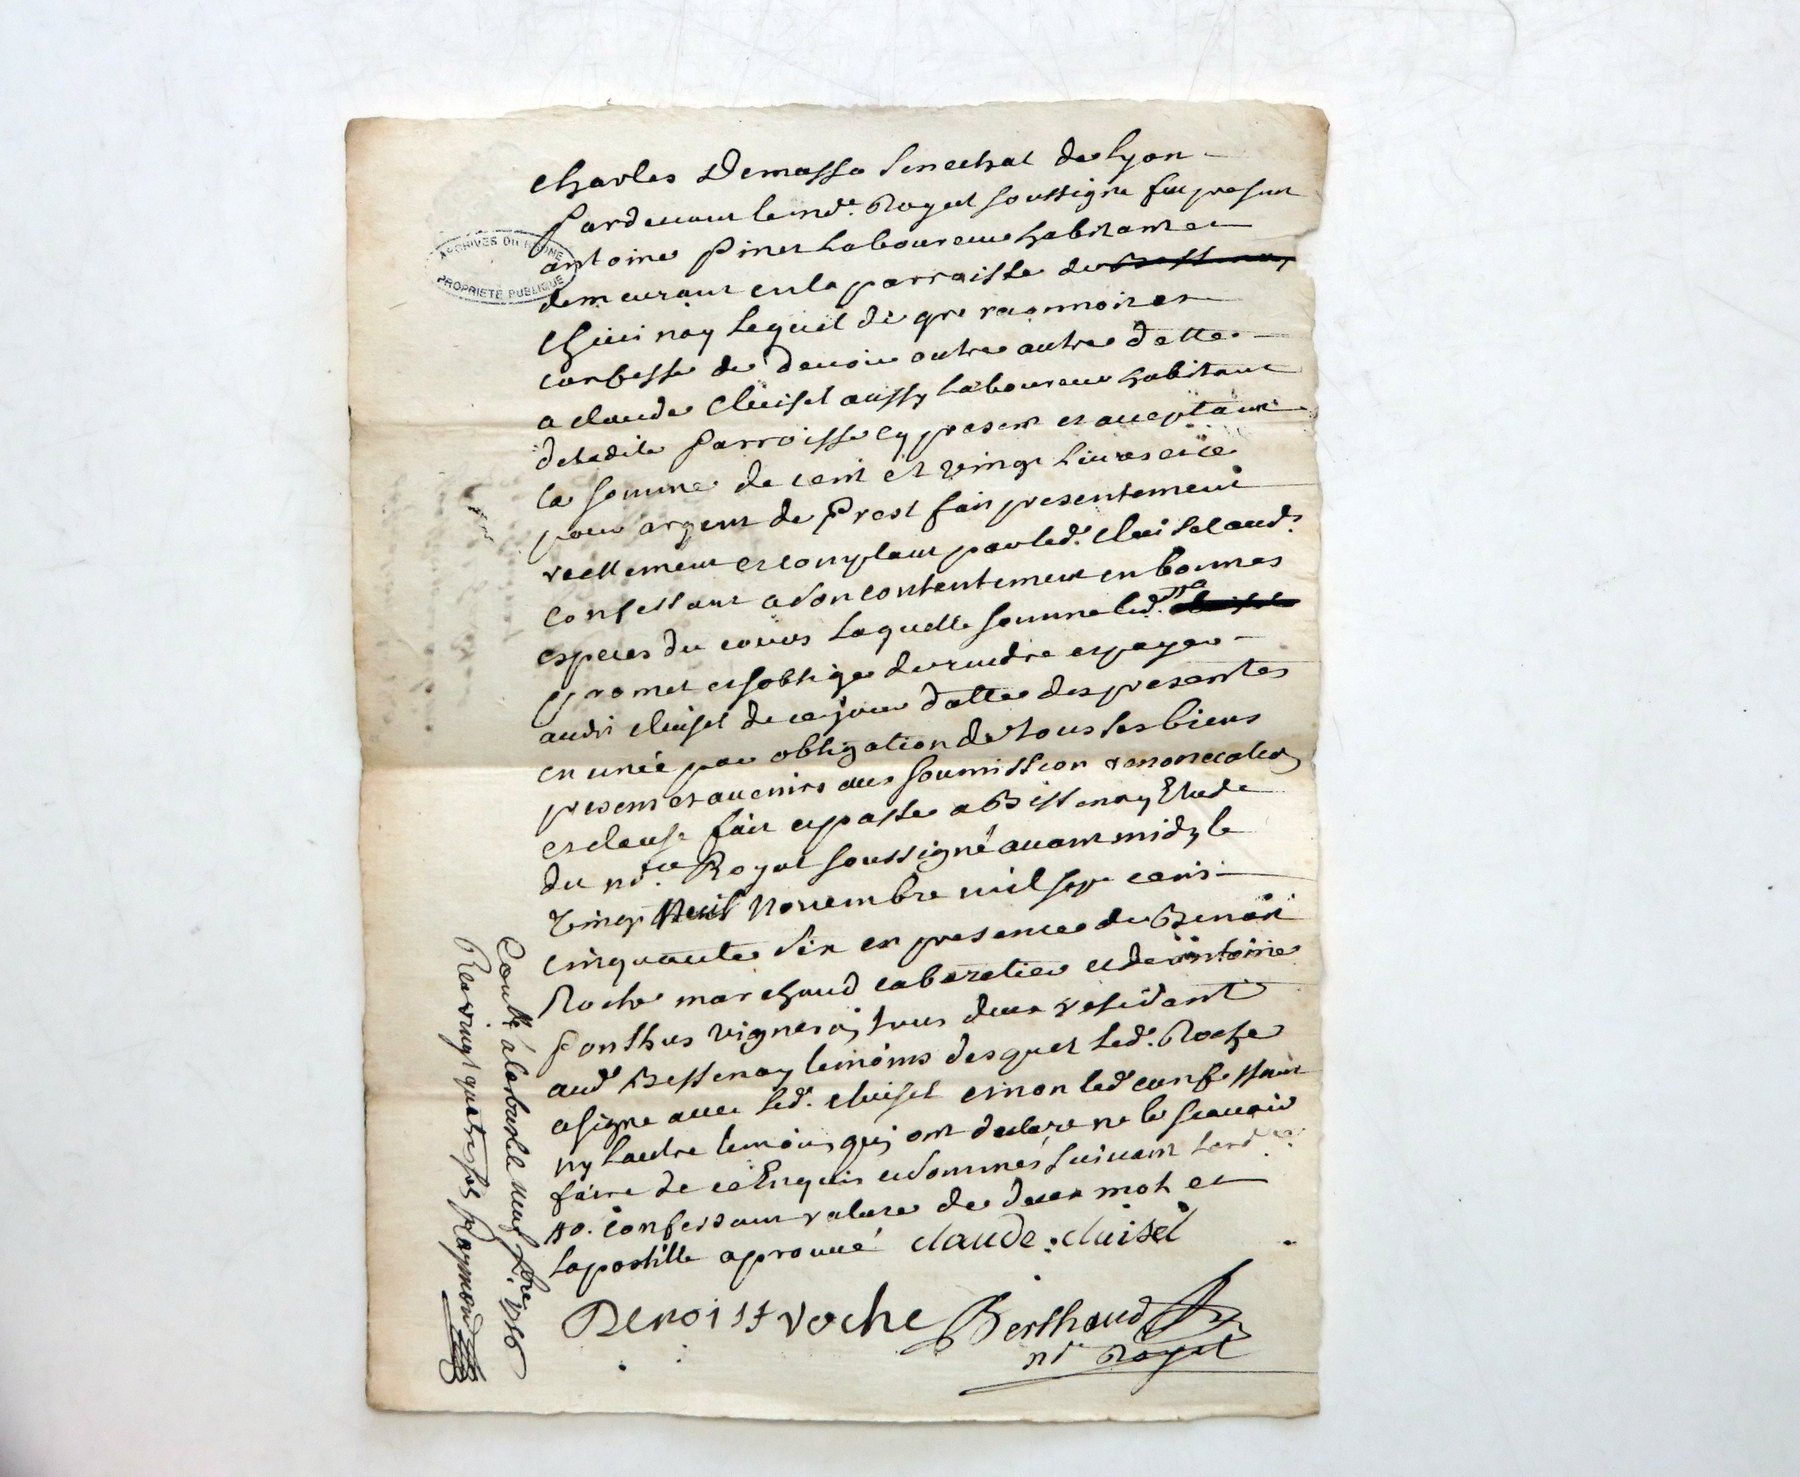 Charles Demasso Senechal de Lyon
Pardevant le nore. Royal soussigné fut present
ARCHIVES DU RHONE
PROPRIETE PUBLIQUE
antoine Pinet Laboureur habitant et
demeurant en la parroisse de
Chevinay Lequel de gré reconnoit et
confesse de devoir outre autre dette
a claude Cluisel aussy Laboureur habitant
deladite Parroisse cy present et acceptant
la somme de cent et vingt Livres et ce
pour argent de Prest fait presentement
reellement et comptant par led. Cluisel aud.
Confessant a son contentement en bonnes
especes du cours Laquelle somme led.
promet et soblige de rendre et payer
audit cluisel de ce jour datte des presentes
en un an par obligation de tous ses biens
presents et avenirs avec soumission renonciation
et clause fait et passé a Bessenay Etude
du nore. Royal soussigné avant midy le
Vingt Neuf Novembre mil sept cents
cinquante six en presence de Benoit
Roche marchand cabaretier et de antoine
Ponthus vigneron tous deux residant
aud. Bessenay temoins desquel led. Roche
a signé avec led. cluisel et non led. confessant
ny lautre temoin qui ont declaré ne le scavoir
faire de ce Enquis et sommés suivant lord.ce
so. confessant rature de deux mot et
lapostille aprouvé claude cluisel
Benoist roche Berthaud
nore Royal
Conllé alarbresle neuf xbre 1756
Re vingt quatre sols Raymond